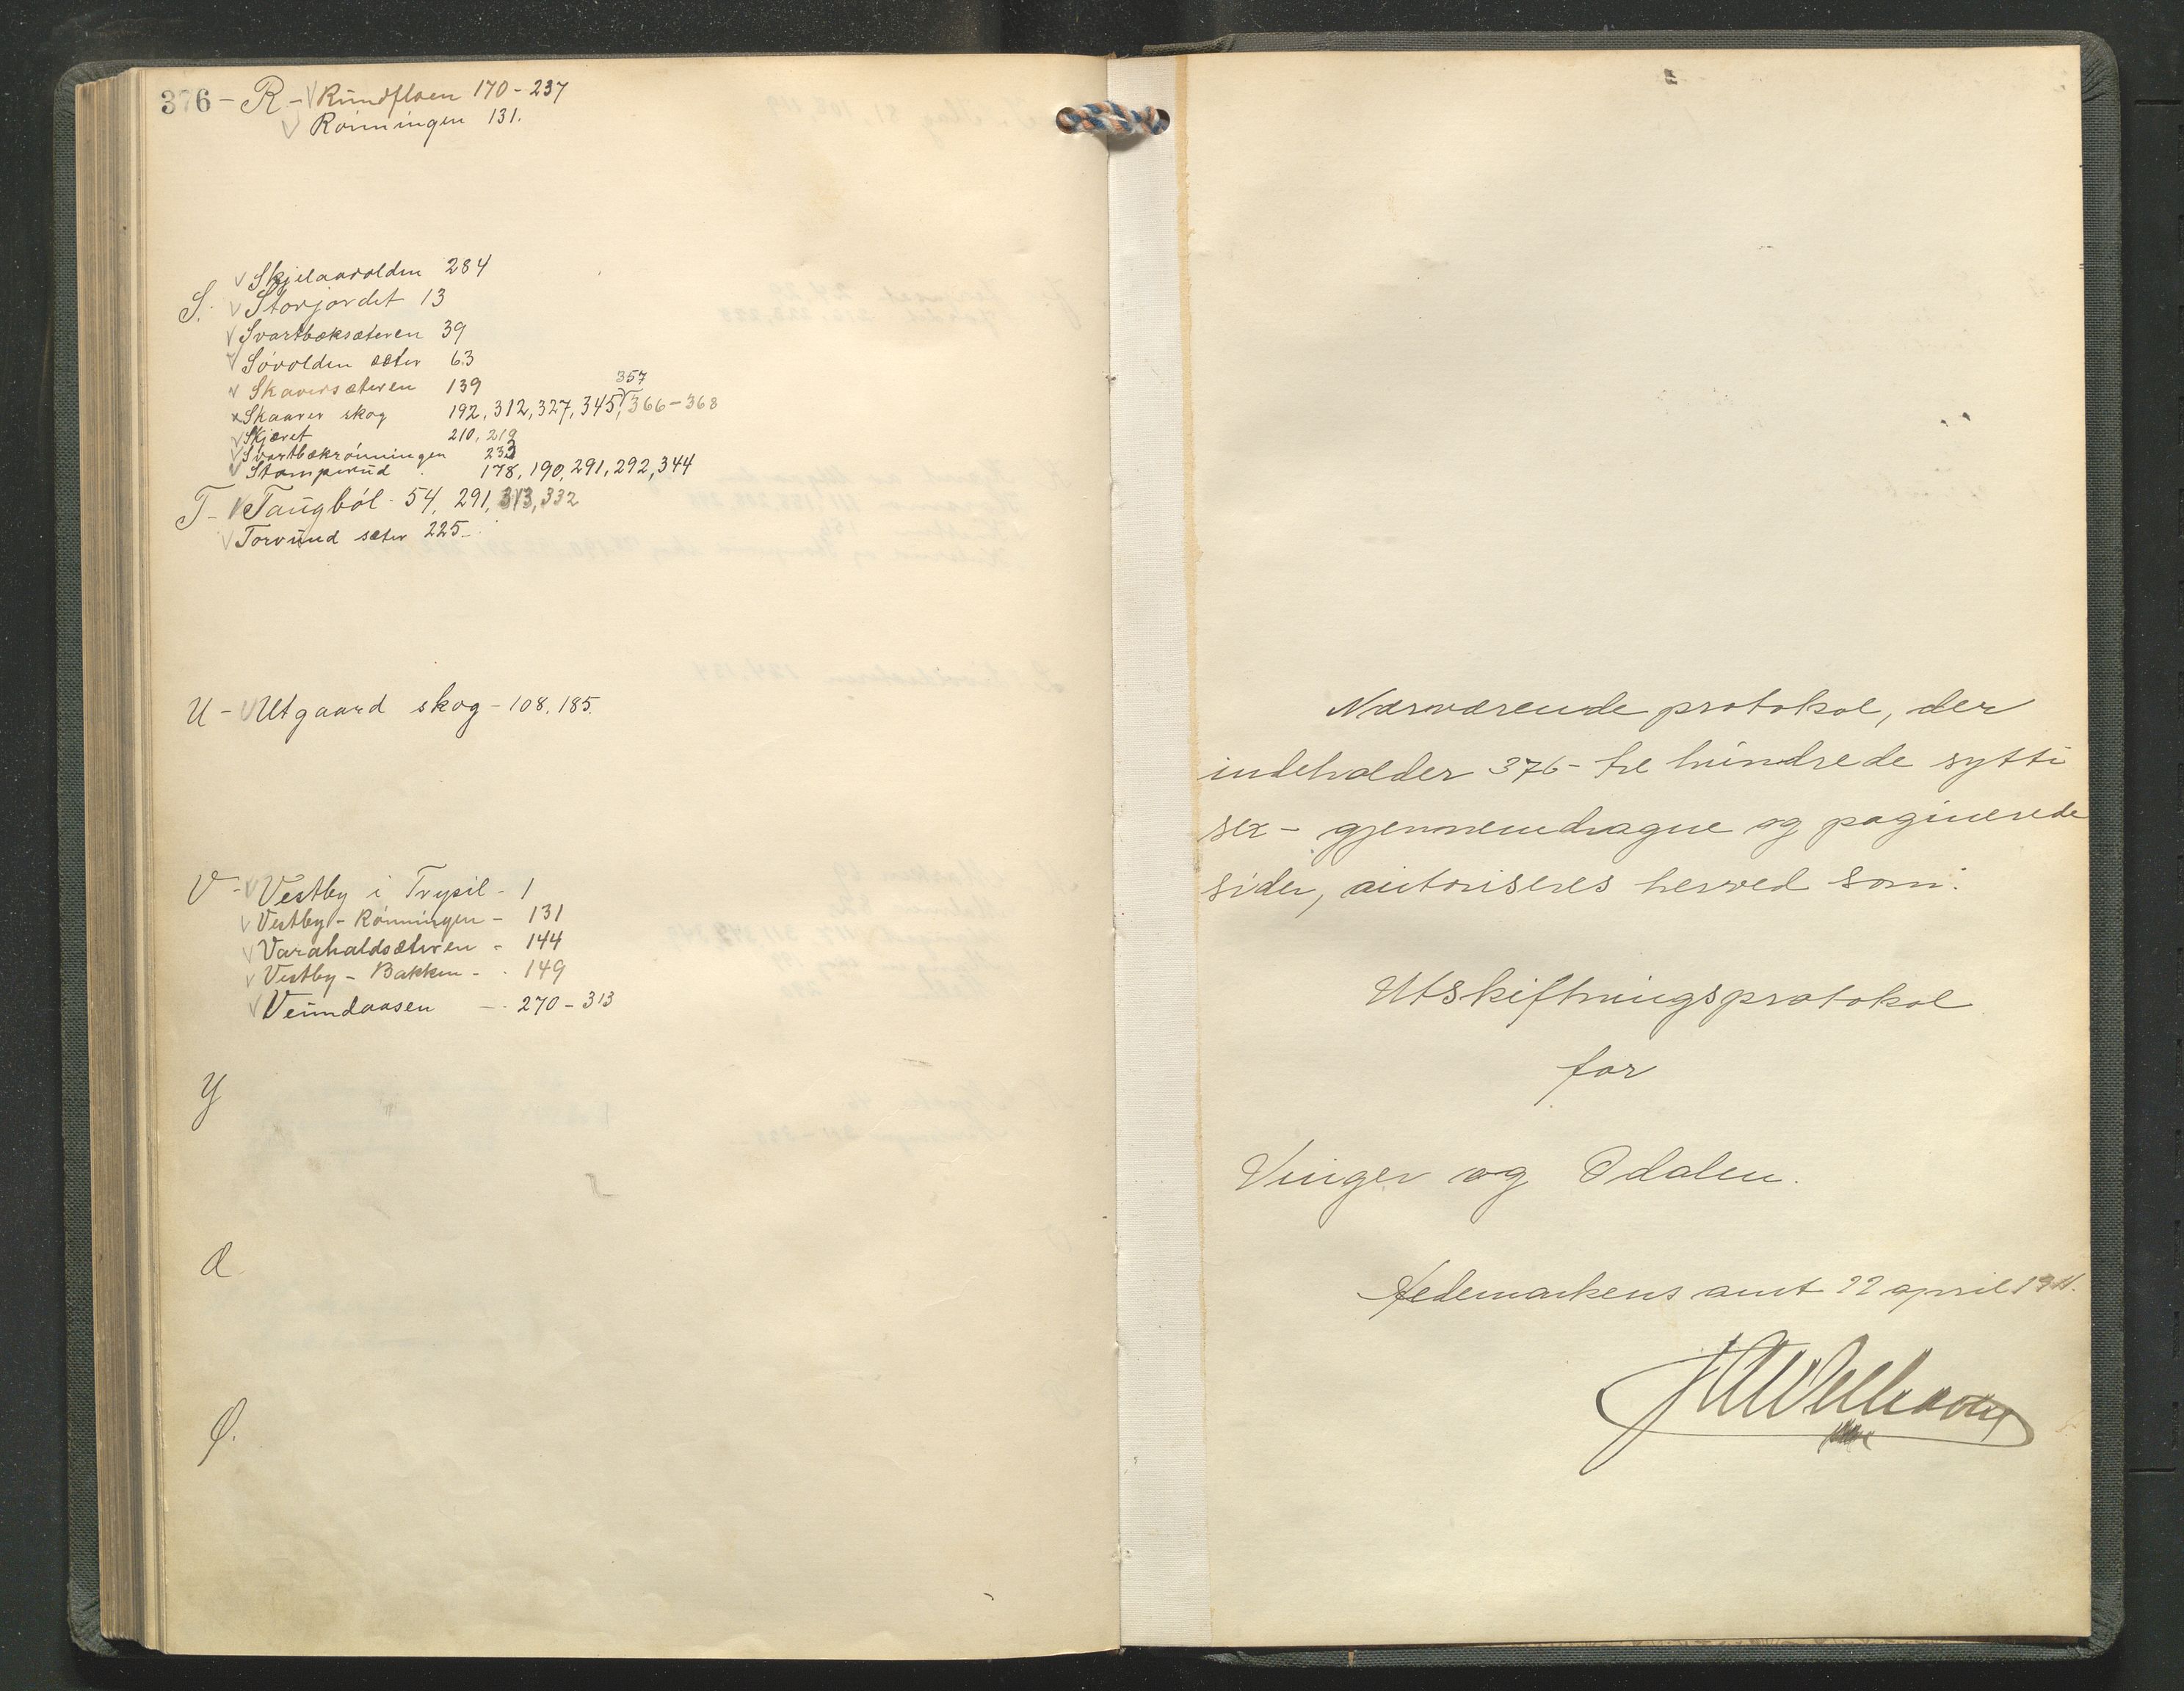 376 - R - Rundfloen 170 - 237
Rönningen 131.
Skjelaavolden 284
S. Storjordet 13
Svartbæksæteren 39
Sövolden sæter 63
Skaversæteren 139
357
Skaarer skog 192, 312, 327, 345, 366-368
Skjæret 210, 219
Svartbækrönningen 233
Stamperud 178, 190, 291, 292, 344
T - Taugböl - 54, 291, 313, 332
Torvund sæter 225 -
U - Utgaard skog - 108, 185.
V - Vestby i Trysil - 1
Vestby - Rönningen - 131
Varahaldsæteren - 144
Vestby - Bakken - 149
Veundaasen - 270 - 313
Y
Ø.
Nærværende protokol, der
indeholder 376 - tre hundrede sytti
sex - gjennemdragne og paginerede
sider, autoriseres herved som:
Utskiftningsprotokol
for
Vinger og Odalen.
Hedemarkens amt 22 april 1911.